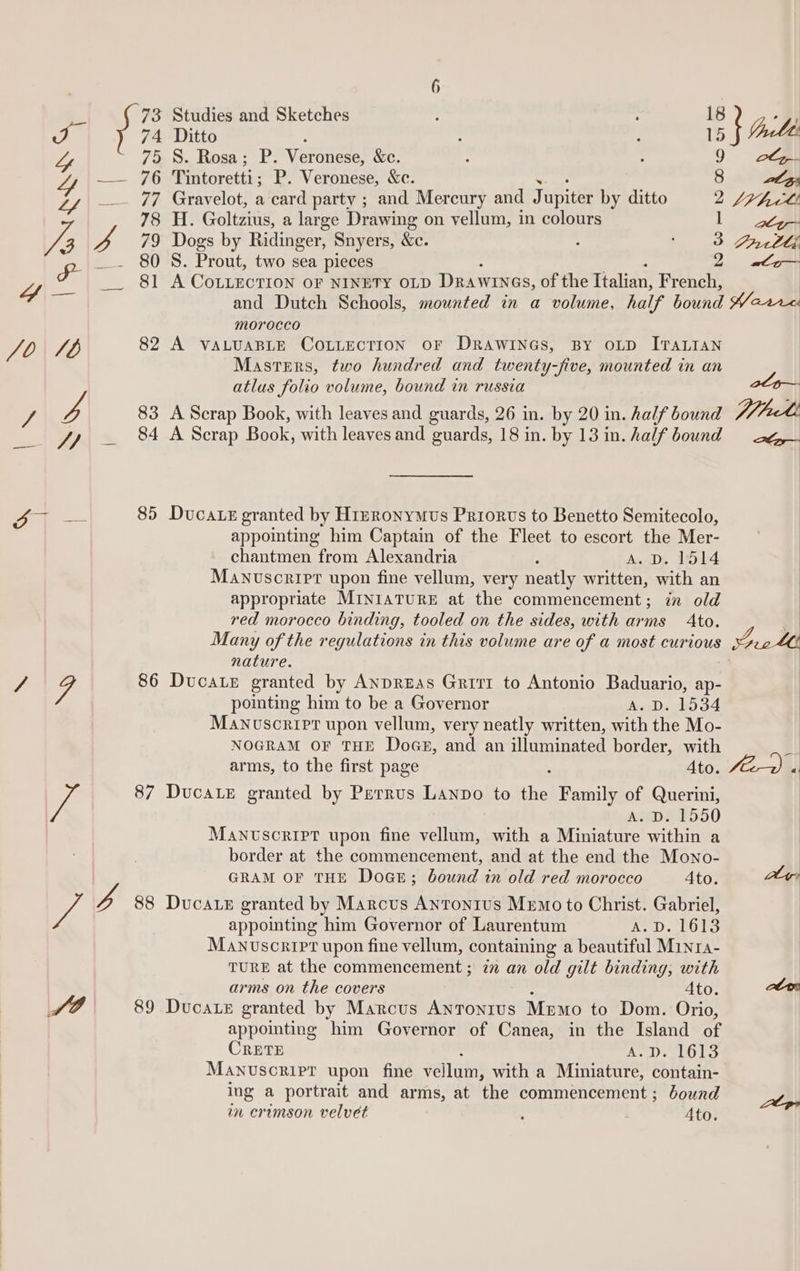 6
73 Studies and Sketches . . 18
74 Ditto . . . 15
75 S. Rosa; P. Veronese, &c. . . 9
76 Tintoretti; P. Veronese, &c. . 8
77 Gravelot, a card party; and Mercury and Jupiter by ditto 2
78 H. Goltzius, a large Drawing on vellum, in colours 1
79 Dogs by Ridinger, Snyers, &c. . . 3
80 S. Prout, two sea pieces . . 2
81 A COLLECTION OF NINETY OLD DRAWINGS, of the Italian, French,
and Dutch Schools, mounted in a volume, half bound
morocco
82 A VALUABLE COLLECTION OF DRAWINGS, BY OLD ITALIAN
MASTERS, two hundred and twenty-five, mounted in an
atlas folio volume, bound in russia
83 A Scrap Book, with leaves and guards, 26 in. by 20 in. half bound
84 A Scrap Book, with leaves and guards, 18 in. by 13 in. half bound
85 DUCALE granted by HIERONYMUS PRIORUS to Benetto Semitecolo,
appointing him Captain of the Fleet to escort the Mer-
chantmen from Alexandria . A. D. 1514
MANUSCRIPT upon fine vellum, very neatly written, with an
appropriate MINIATURE at the commencement; in old
red morocco binding, tooled on the sides, with arms 4to.
Many of the regulations in this volume are of a most curious
nature.
86 DUCALE granted by ANDREAS GRITI to Antonio Baduario, ap-
pointing him to be a Governor A. D. 1534
MANUSCRIPT upon vellum, very neatly written, with the MO-
NOGRAM OF THE DOGE, and an illuminated border, with
arms, to the first page . 4to.
87 DUCALE granted by PETRUS LANDO to the Family of Querini,
A. D. 1550
MANUSCRIPT upon fine vellum, with a Miniature within a
border at the commencement, and at the end the MONO-
GRAM OF THE DOGE; bound in old red morocco 4to.
88 DUCALE granted by MARCUS ANTONIUS MEMO to Christ. Gabriel,
appointing him Governor of Laurentum A. D. 1613
MANUSCRIPT upon fine vellum, containing a beautiful MINIA-
TURE at the commencement; in an old gilt binding, with
arms on the covers . 4to.
89 DUCALE granted by MARCUS ANTONIUS MEMO to Dom. Orio,
appointing him Governor of Canea, in the Island of
CRETE . A. D. 1613
MANUSCRIPT upon fine vellum, with a Miniature, contain-
ing a portrait and arms, at the commencement; bound
in crimson velvet . 4to.